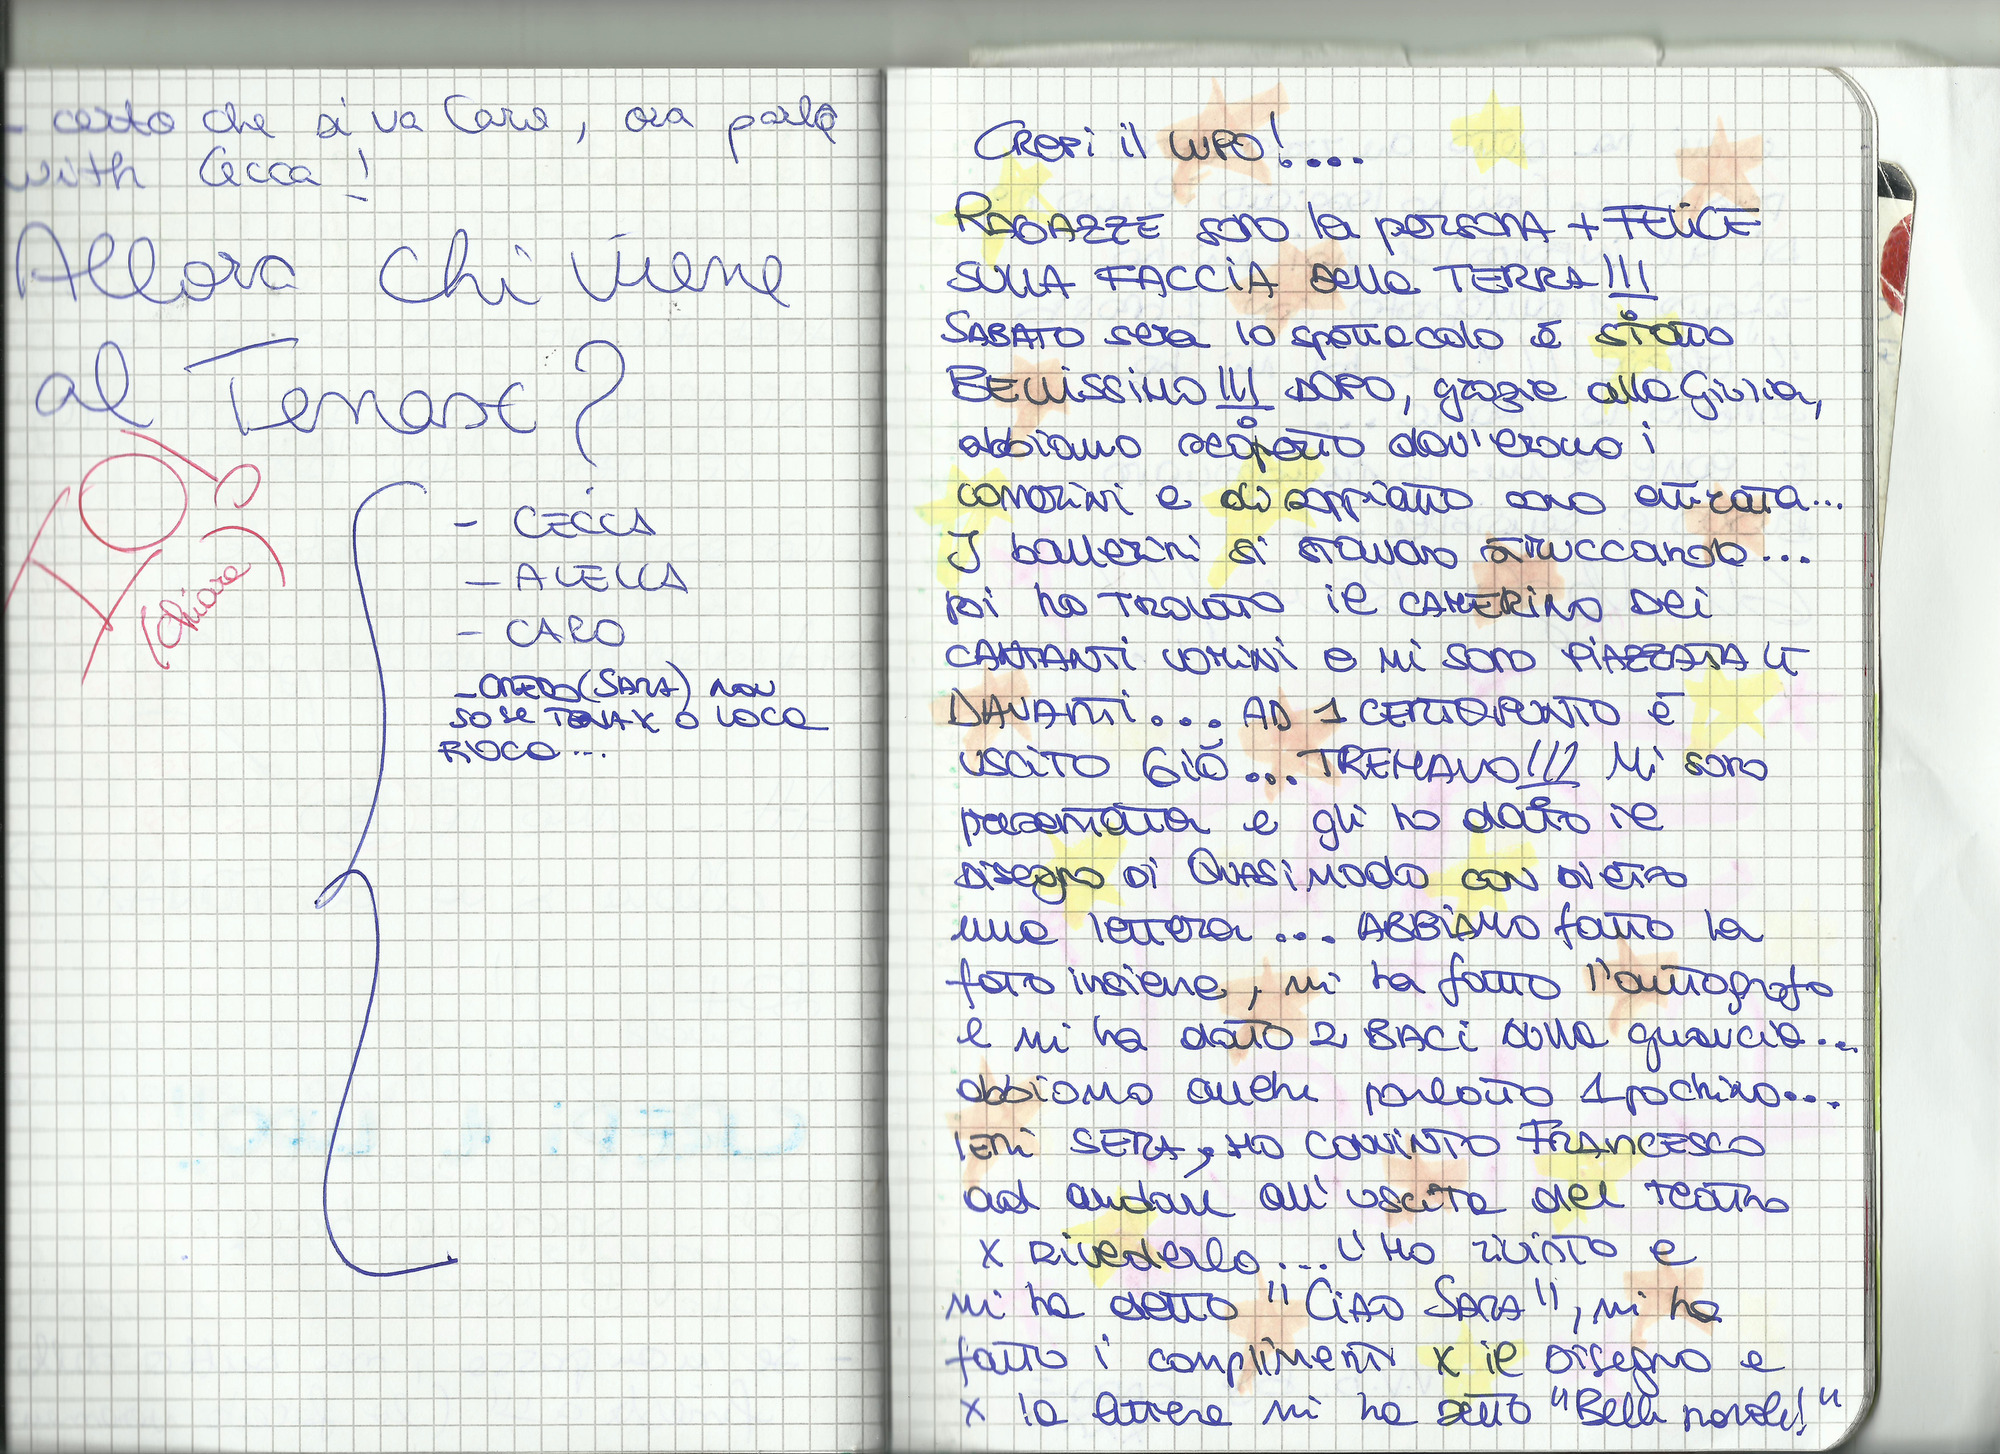 - certo che si va Caro, ora parlo
with Cecca!
Allora chi viene
al Tenax?
IO
(chiara)
- CECCA
- ALELLA
- CARO
(SARA) NON
SO SE TENAX O LOCO
LOCO...
CREPI il LUPO!....
RAGAZZE sono la persona + FELICE
SULLA FACCIA della TERRA!!!
SABATO sera lo spettacolo è stato
BELLISSIMO!!! DOPO, grazie alla Giulia,
abbiamo scoperto dov'erano i
camerini e di soppiatto sono entrata...
I ballerini si stavano struccando...
poi ho TROVATO il CAMERINO DEI
CANTANTI UOMINI e MI SONO PIAZZATA LÌ
DAVANTI... AD 1 CERTO PUNTO È
USCITO GIÒ... TREMAVO!!! Mi sono
presentata e gli ho dato il
disegno di QUASIMODO con dietro
una lettera... ABBIAMO fatto la
foto insieme, mi ha fatto l'autografo
e mi ha dato 2 BACI sulla guancia...
abbiamo anche parlato 1 pochino...
IERI SERA, HO CONVINTO FRANCESCO
ad andare all'uscita del teatro
x rivederlo... L'HO rivisto e
mi ha detto "CIAO SARA", mi ha
fatto i complimenti x il disegno e
x la lettera mi ha detto "Belle parole!"